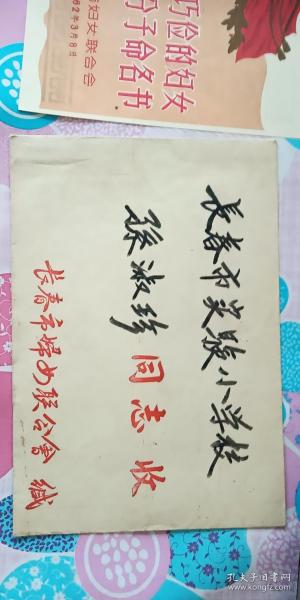 巧俭的妇女
分子命名书
妇女联合会
62年3月8日
长春市实验小学校
孙淑珍同志收
长春市妇女联合会缄
孔夫子旧书网